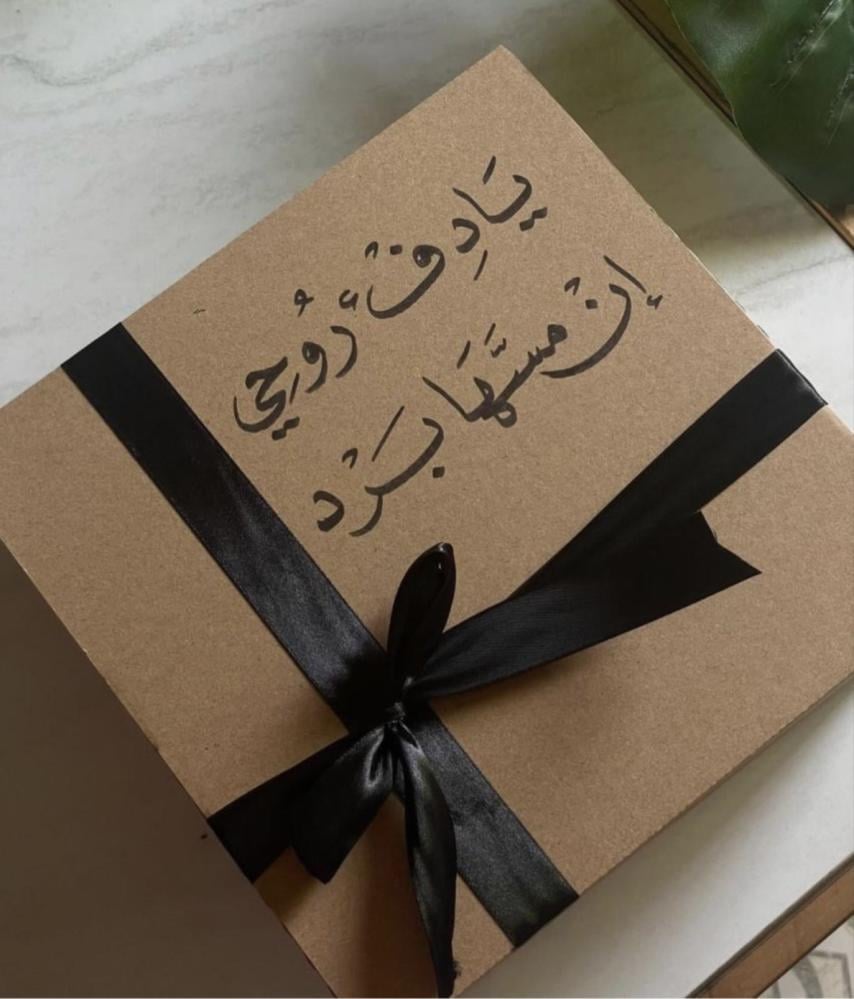 يَادِفْ رُوحِي
إنْ مسَّهَا بَرْد